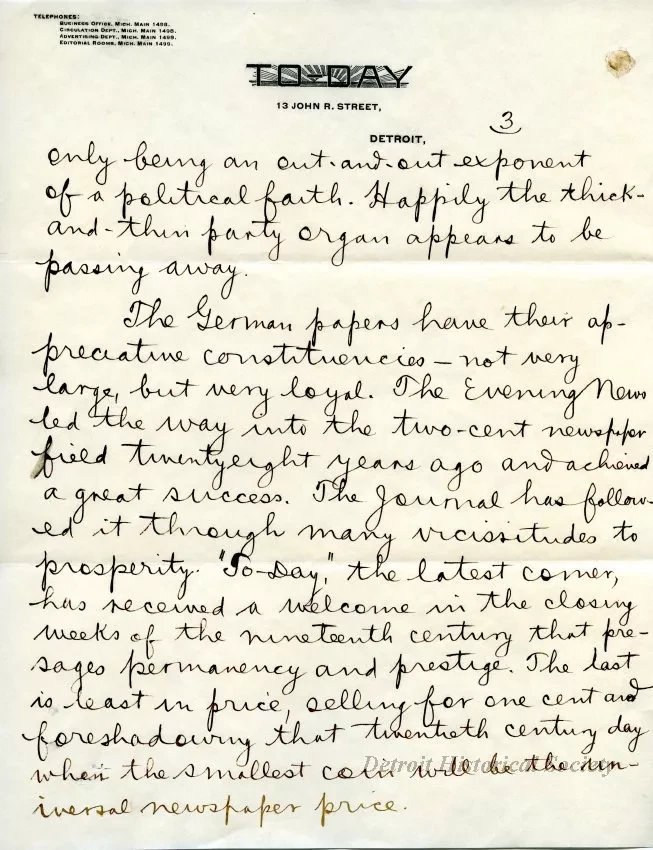 TELEPHONES:
BUSINESS OFFICE, MICH. MAIN 1498.
CIRCULATION DEPT., MICH. MAIN 1498.
ADVERTISING DEPT., MICH. MAIN 1498.
EDITORIAL ROOMS, MICH. MAIN 1490.
TO-DAY
13 JOHN R. STREET,
3
DETROIT,
only being an out-and-out exponent
of a political faith. Happily the thick-
and-thin party organ appears to be
passing away.
The German papers have their ap-
preciative constituencies – not very
large, but very loyal. The Evening News
led the way into the two-cent newspaper
field twentyeight years ago and achieved
a great success. The Journal has follow-
ed it through many vicissitudes to
prosperity. "To-Day," the latest comer,
has received a welcome in the closing
weeks of the nineteenth century that pre-
sages permanency and prestige. The last
is least in price, selling for one cent and
foreshadowing that twentieth century day
when the smallest coin will be the un-
iversal newspaper price.
Detroit Historical Society